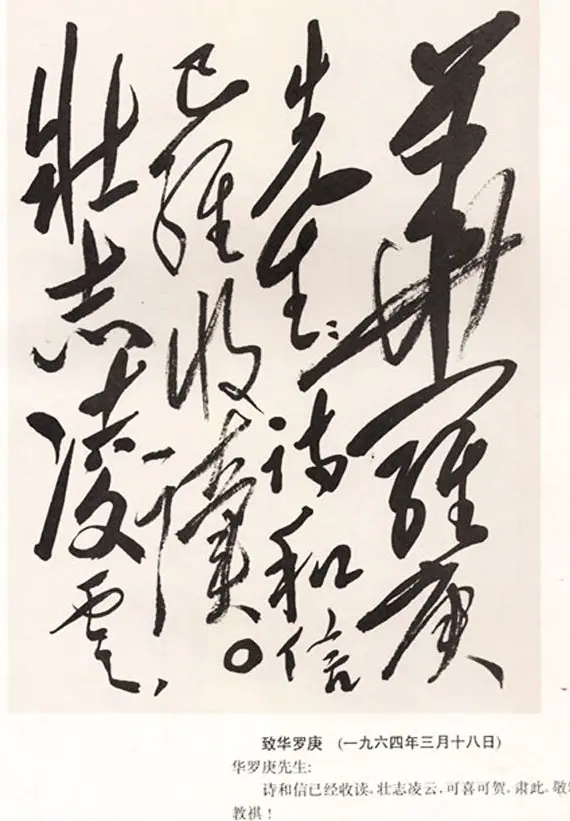 華羅庚
先生：詩和信
已經收讀。
壯志凌雲，
致华罗庚 (一九六四年三月十八日)
华罗庚先生:
诗和信已经收读.壮志凌云,可喜可贺.肃此.敬
教祺！